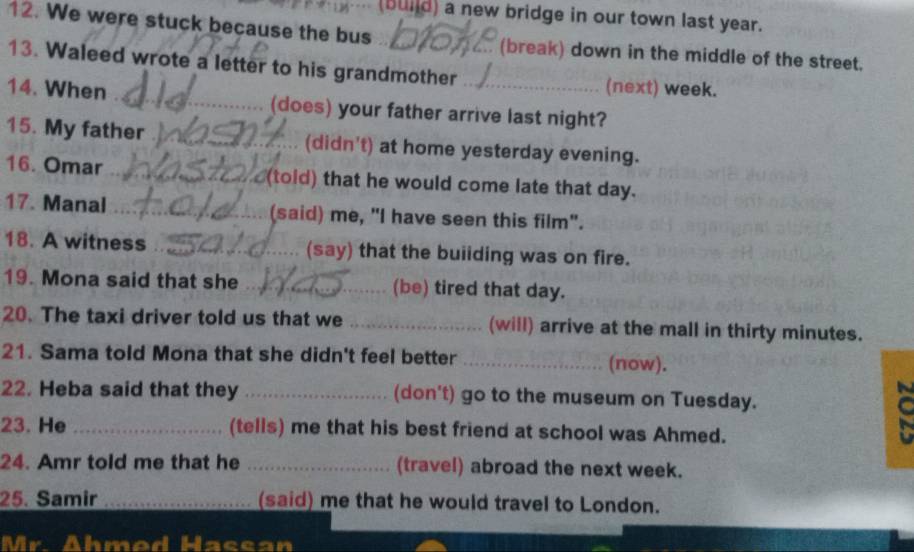 (build) a new bridge in our town last year.
12. We were stuck because the bus broke (break) down in the middle of the street.
13. Waleed wrote a letter to his grandmother (next) week.
14. When did (does) your father arrive last night?
15. My father wasn't (didn't) at home yesterday evening.
16. Omar was told (told) that he would come late that day.
17. Manal told (said) me, "I have seen this film".
18. A witness said (say) that the building was on fire.
19. Mona said that she was (be) tired that day.
20. The taxi driver told us that we (will) arrive at the mall in thirty minutes.
21. Sama told Mona that she didn't feel better (now).
22. Heba said that they (don't) go to the museum on Tuesday.
23. He (tells) me that his best friend at school was Ahmed.
24. Amr told me that he (travel) abroad the next week.
25. Samir (said) me that he would travel to London.
2025
Mr. Ahmed Hassan